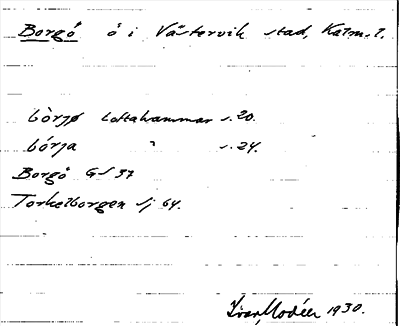 Borgö ö i Västervik stad, Kalm. l.
bòrjø Loftahammar s. 20.
bórja " s. 24.
Borgö GS 37
Torkelborgen Sj 64.
Ivar Modéer 1930.